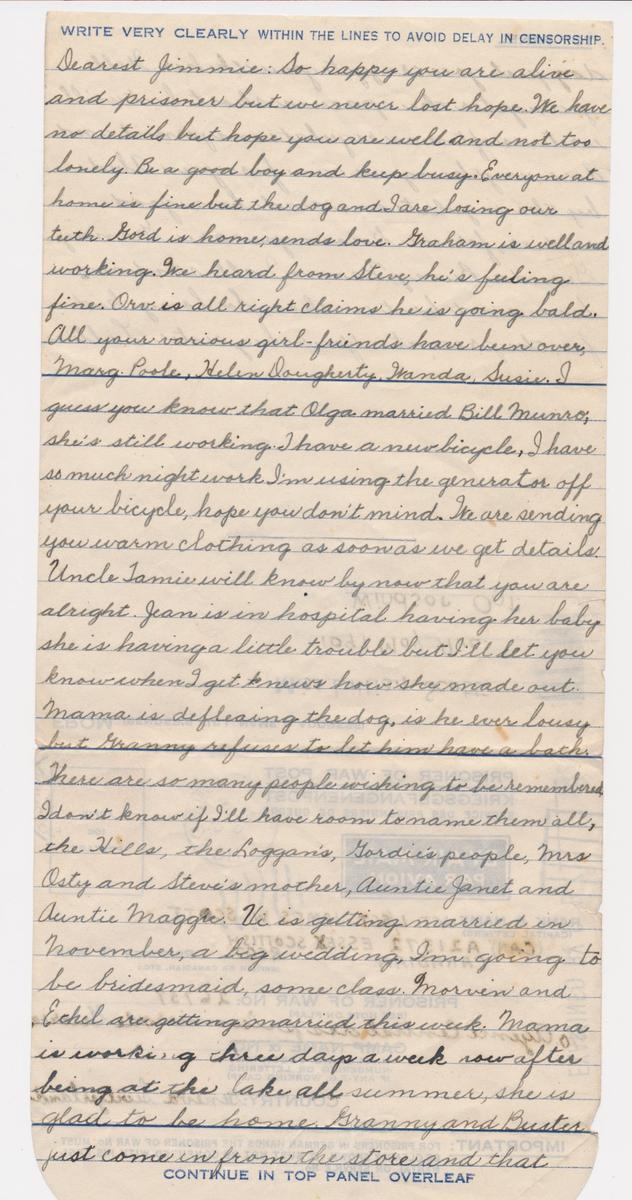 WRITE VERY CLEARLY WITHIN THE LINES TO AVOID DELAY IN CENSORSHIP.
Dearest Jimmie: So happy you are alive
and prisoner but we never lost hope. We have
no details but hope you are well and not too
lonely. Be a good boy and keep busy. Everyone at
home is fine but the dog and I are losing our
teeth. Gord is home, sends love. Graham is well and
working. We heard from Steve, he's feeling
fine. Orv. is all right claims he is going bald.
All your various girl-friends have been over,
Marg. Poole, Helen Dougherty, Wanda, Susie. I
guess you know that Olga married Bill Munro;
she's still working. I have a new bicycle, I have
so much night work I'm using the generator off
your bicycle, hope you don't mind. We are sending
you warm clothing as soon as we get details.
Uncle Tamie will know by now that you are
alright. Jean is in hospital having her baby
she is having a little trouble but I'll let you
know when I get knews how she made out.
Mama is defleaing the dog, is he ever lousy
but Granny refuses to let him have a bath.
There are so many people wishing to be remembered,
I don't know if I'll have room to name them all,
the Hills, the Loggan's, Gordie's people, Mrs
Osty and Steve's mother, Auntie Janet and
Auntie Maggie. Vi is getting married in
November, a big wedding, I'm going to
be bridesmaid, some class. Morven and
Ethel are getting married this week. Mama
is worki g three days a week now after
being at the lake all summer, she is
glad to be home. Granny and Buster
just come in from the store and that
CONTINUE IN TOP PANEL OVERLEAF